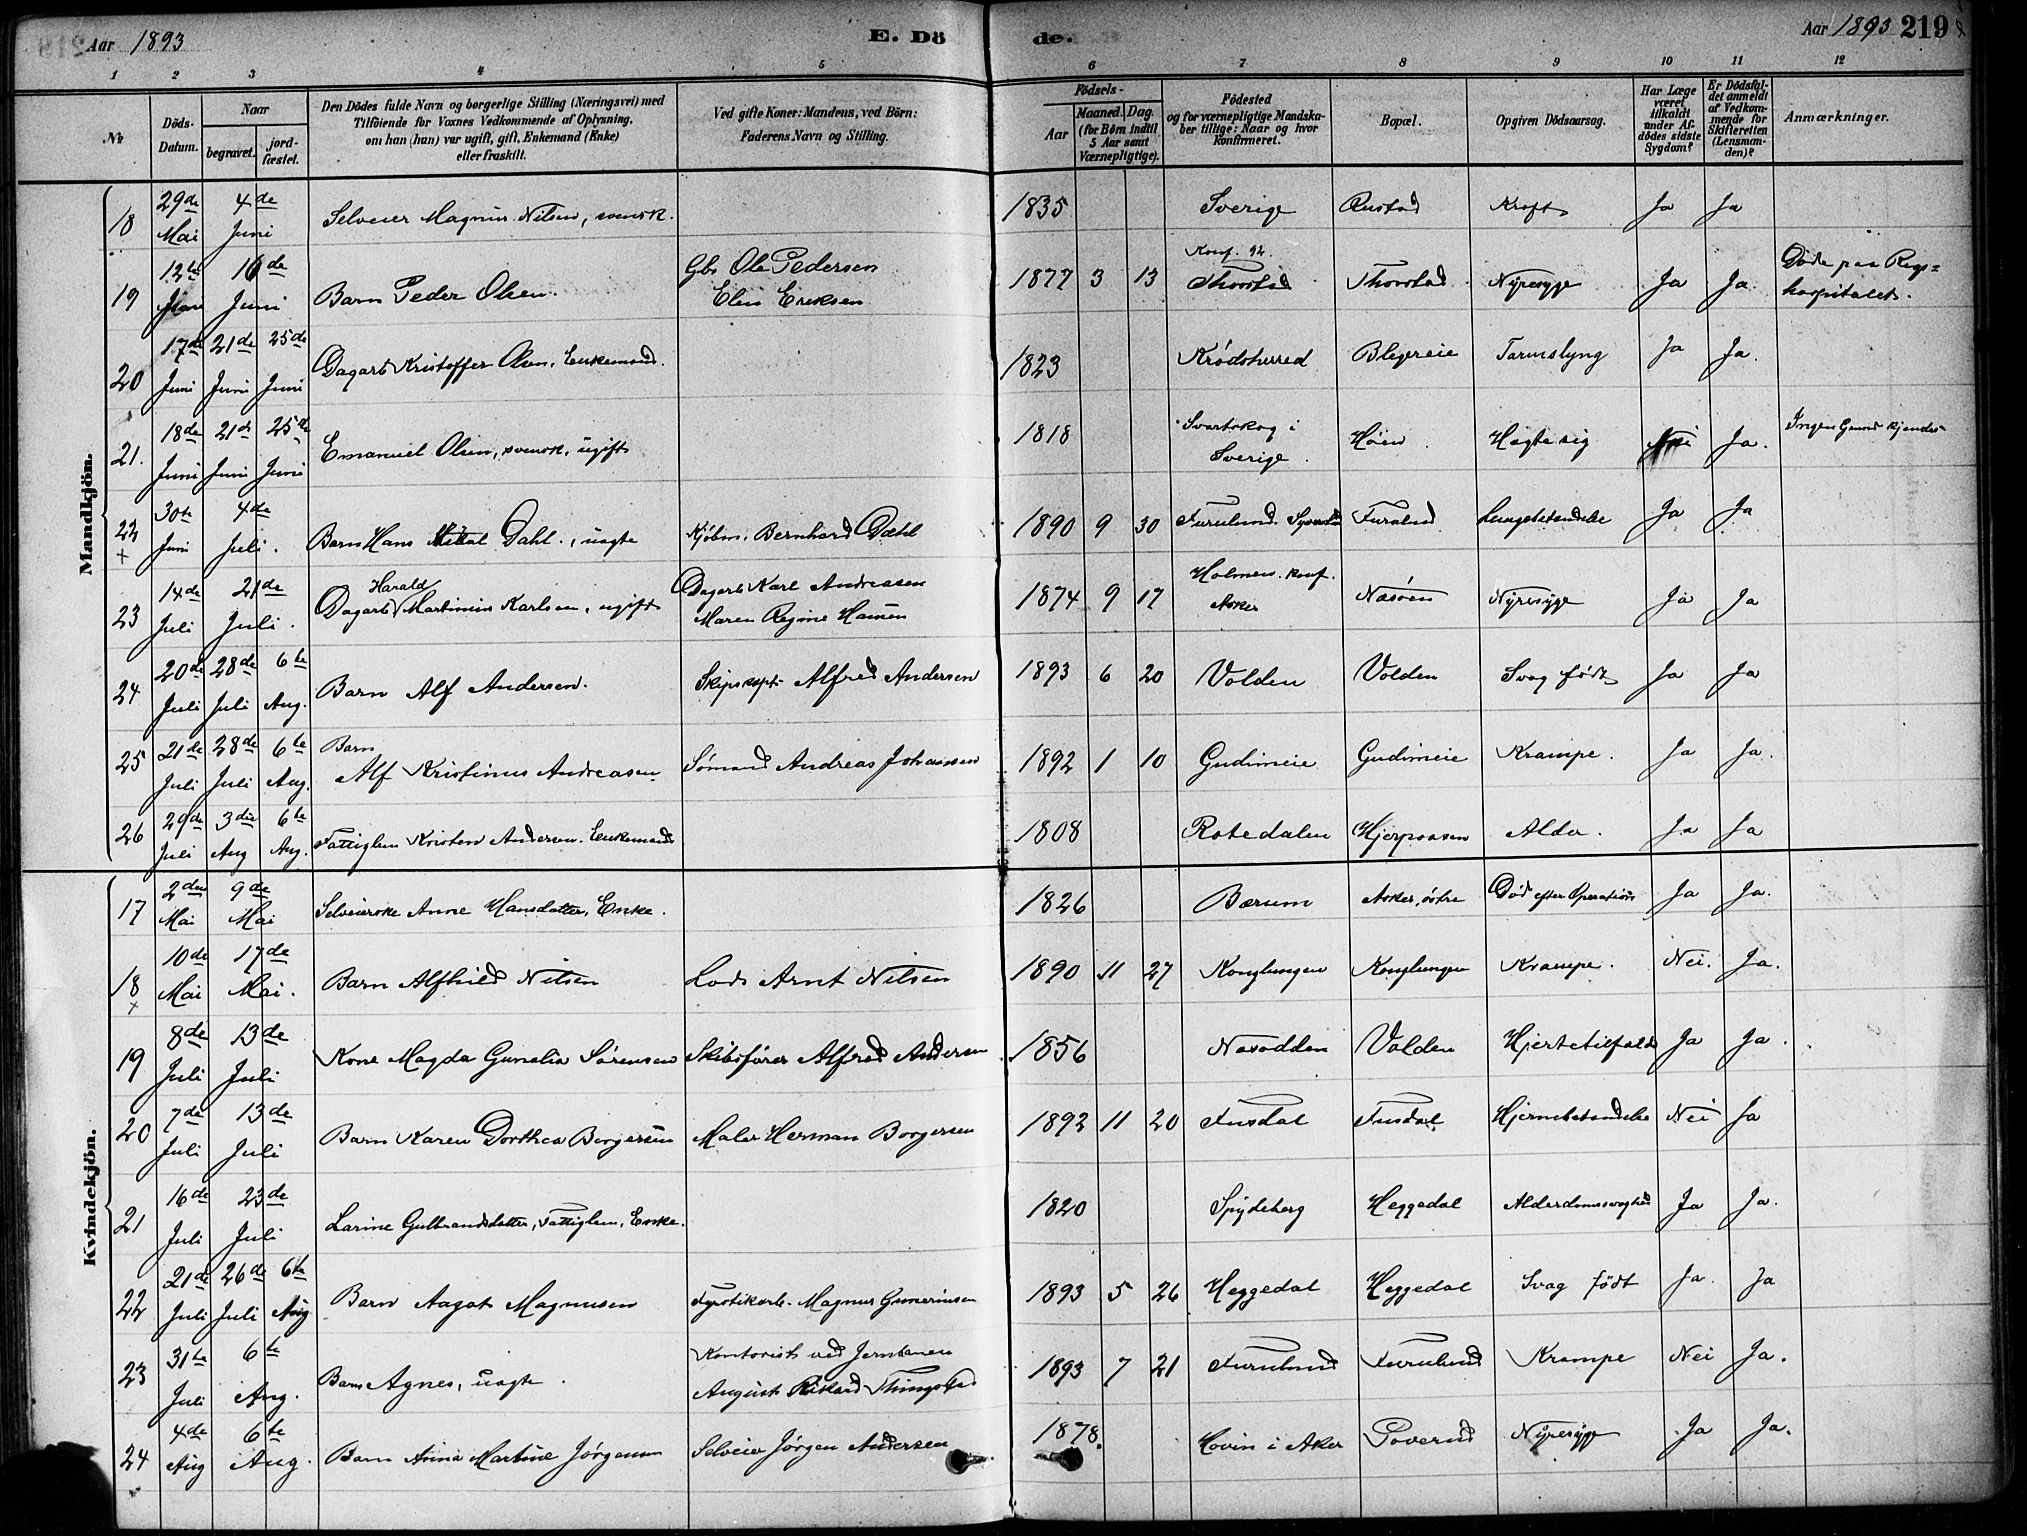 Aar 1893 E. Dö
de. Aar 1893 219
1 2 3 4 5 6 7 8 9 10 11 12
№
Döds-Datum.
Naar
begravet.
jord-fæstet.
Den Dödes fulde Navn og borgerlige Stilling (Næringsvei) med
Tilföiende for Voxnes Vedkommende af Oplysning,
om han (hun) var ugift, gift, Enkemand (Enke)
eller fraskilt.
Ved gifte Koner: Mandens, ved Börn:
Faderens Navn og Stilling.
Födsels-
Aar
Maaned. Dag.
(for Börn indtil
5 Aar samt
Værnepligtige).
Födested
og for værnepligtige Mandska-
ber tillige: Naar og hvor
konfirmeret.
Bopæl.
Opgiven Dödsaarsag.
Har Læge
været
tilkaldt
under Af-
dödes sidste
Sygdom?
Er Dödsfal-
det anmeldt
af Vedkom-
mende for
Skifteretten
(Lensman-
den)?
Anmærkninger.
Mandkjön.
18 29de Mai 4de Juni Selveier Magnus Nilsen, svensk. 1835 Sverige Rustad Kræft Ja Ja
19 12te 16de Juni Barn Peder Olsen. Gbr Ole Pedersen
Elen Eriksen 1877 3 13 Konf. 92.
Thorstad Thorstad Nyresyge Ja Ja Døde paa Rigs=
hospitalet.
20 17de Juni 21de Juni 25de Juni Dagarb Kristoffer Olsen, Enkemand. 1823 Krødsherred Blegereie Tarmslyng Ja Ja.
21. 18de Juni 21de Juni 25de Juni Emanuel Olsen, svensk, ugift 1818 Svartskog i
Sverige Høien Hægte sig Nei Ja. Ingen Grund kjendes
22 + 30te Juni 4de Juli. Barn Hans Dahl, uægte Kjøbm. Bernhard Dahl 1890 9 30 Furulund Furulund Lungebetændelse Ja Ja
23 14de Juli 21de Juli. Harald
Dagarb Martinius Karlsen, ugift Dagarb Karl Andreasen
Maren Regine Hansen 1874 9 17 Holmen. konf.
Asker Næsøen Nyresyge Ja Ja
24 20de Juli 28de Juli 6te Aug. Barn Alf Andersen. Skipskapt. Alfred Andersen 1893 6 20 Volden Volden Svag født Ja Ja
25 21de Juli 28de Juli 6te Aug. Barn
Alf Kristinus Andreasen Sømand Andreas Johansen 1892 1 10 Gudimeie Gudimeie Krampe. Ja Ja.
26 29de Juli 3die Aug 6te Aug. Fattiglem Kristen Andersen. Enkemand 1808 Rotedalen Hjerpaasen Alder. Ja Ja
Kvindekjön.
17 2den Mai 9de Mai Selveierske Anne Hansdatter, Enke. 1826 Bærum Asker, østre Død efter Operation Ja Ja.
18 + 10de Mai 17de Mai. Barn Alfhild Nilsen Lods Arnt Nilsen 1890 11 27 Konglungen Konglungen Krampe. Nei. Ja.
19 8de Juli 13de Juli Kone Magda Gunelia Sørensen Skibsfører Alfred Andersen 1856 Næsodden Volden Hjertetilfælde Ja Ja.
20 7de Juli 13de Juli Barn Karen Dorthea Borgersen Maler Herman Borgersen 1892 11 20 Fusdal Fusdal Hjernebetændelse Nei Ja
21 16de Juli 23de Juli Larine Gulbrandsdatter, Fattiglem, Enke. 1820 Spydeberg Heggedal Alderdomssvaghed Ja Ja.
22 21de Juli 26de Juli 6te Aug Barn Aagot Magnusen Fyrstikarb. Magnus Gunerinsen 1893 5 26 Heggedal Heggedal Svag født Ja. Ja
23 31te Juli 6te Aug. Barn Agnes, uægte. Kontorist ved Jernbanen
August Rikard Thingstad 1893 7 21 Furulund Furulund Krampe Nei Ja.
24 4de Aug 6te Aug. Barn Anna Martine Jørgensen Selveier Jørgen Andersen 1878. Hovin i Aker Poverud Nyresyge Ja Ja.